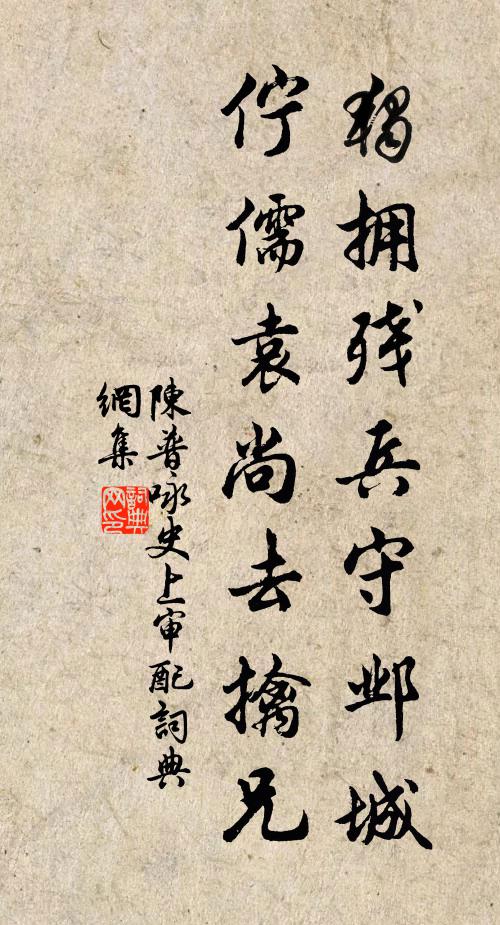 独拥残兵守邺城
佇儒袁尚去擒兄
陳普咏史上审配詞典
網集
詞典
网印